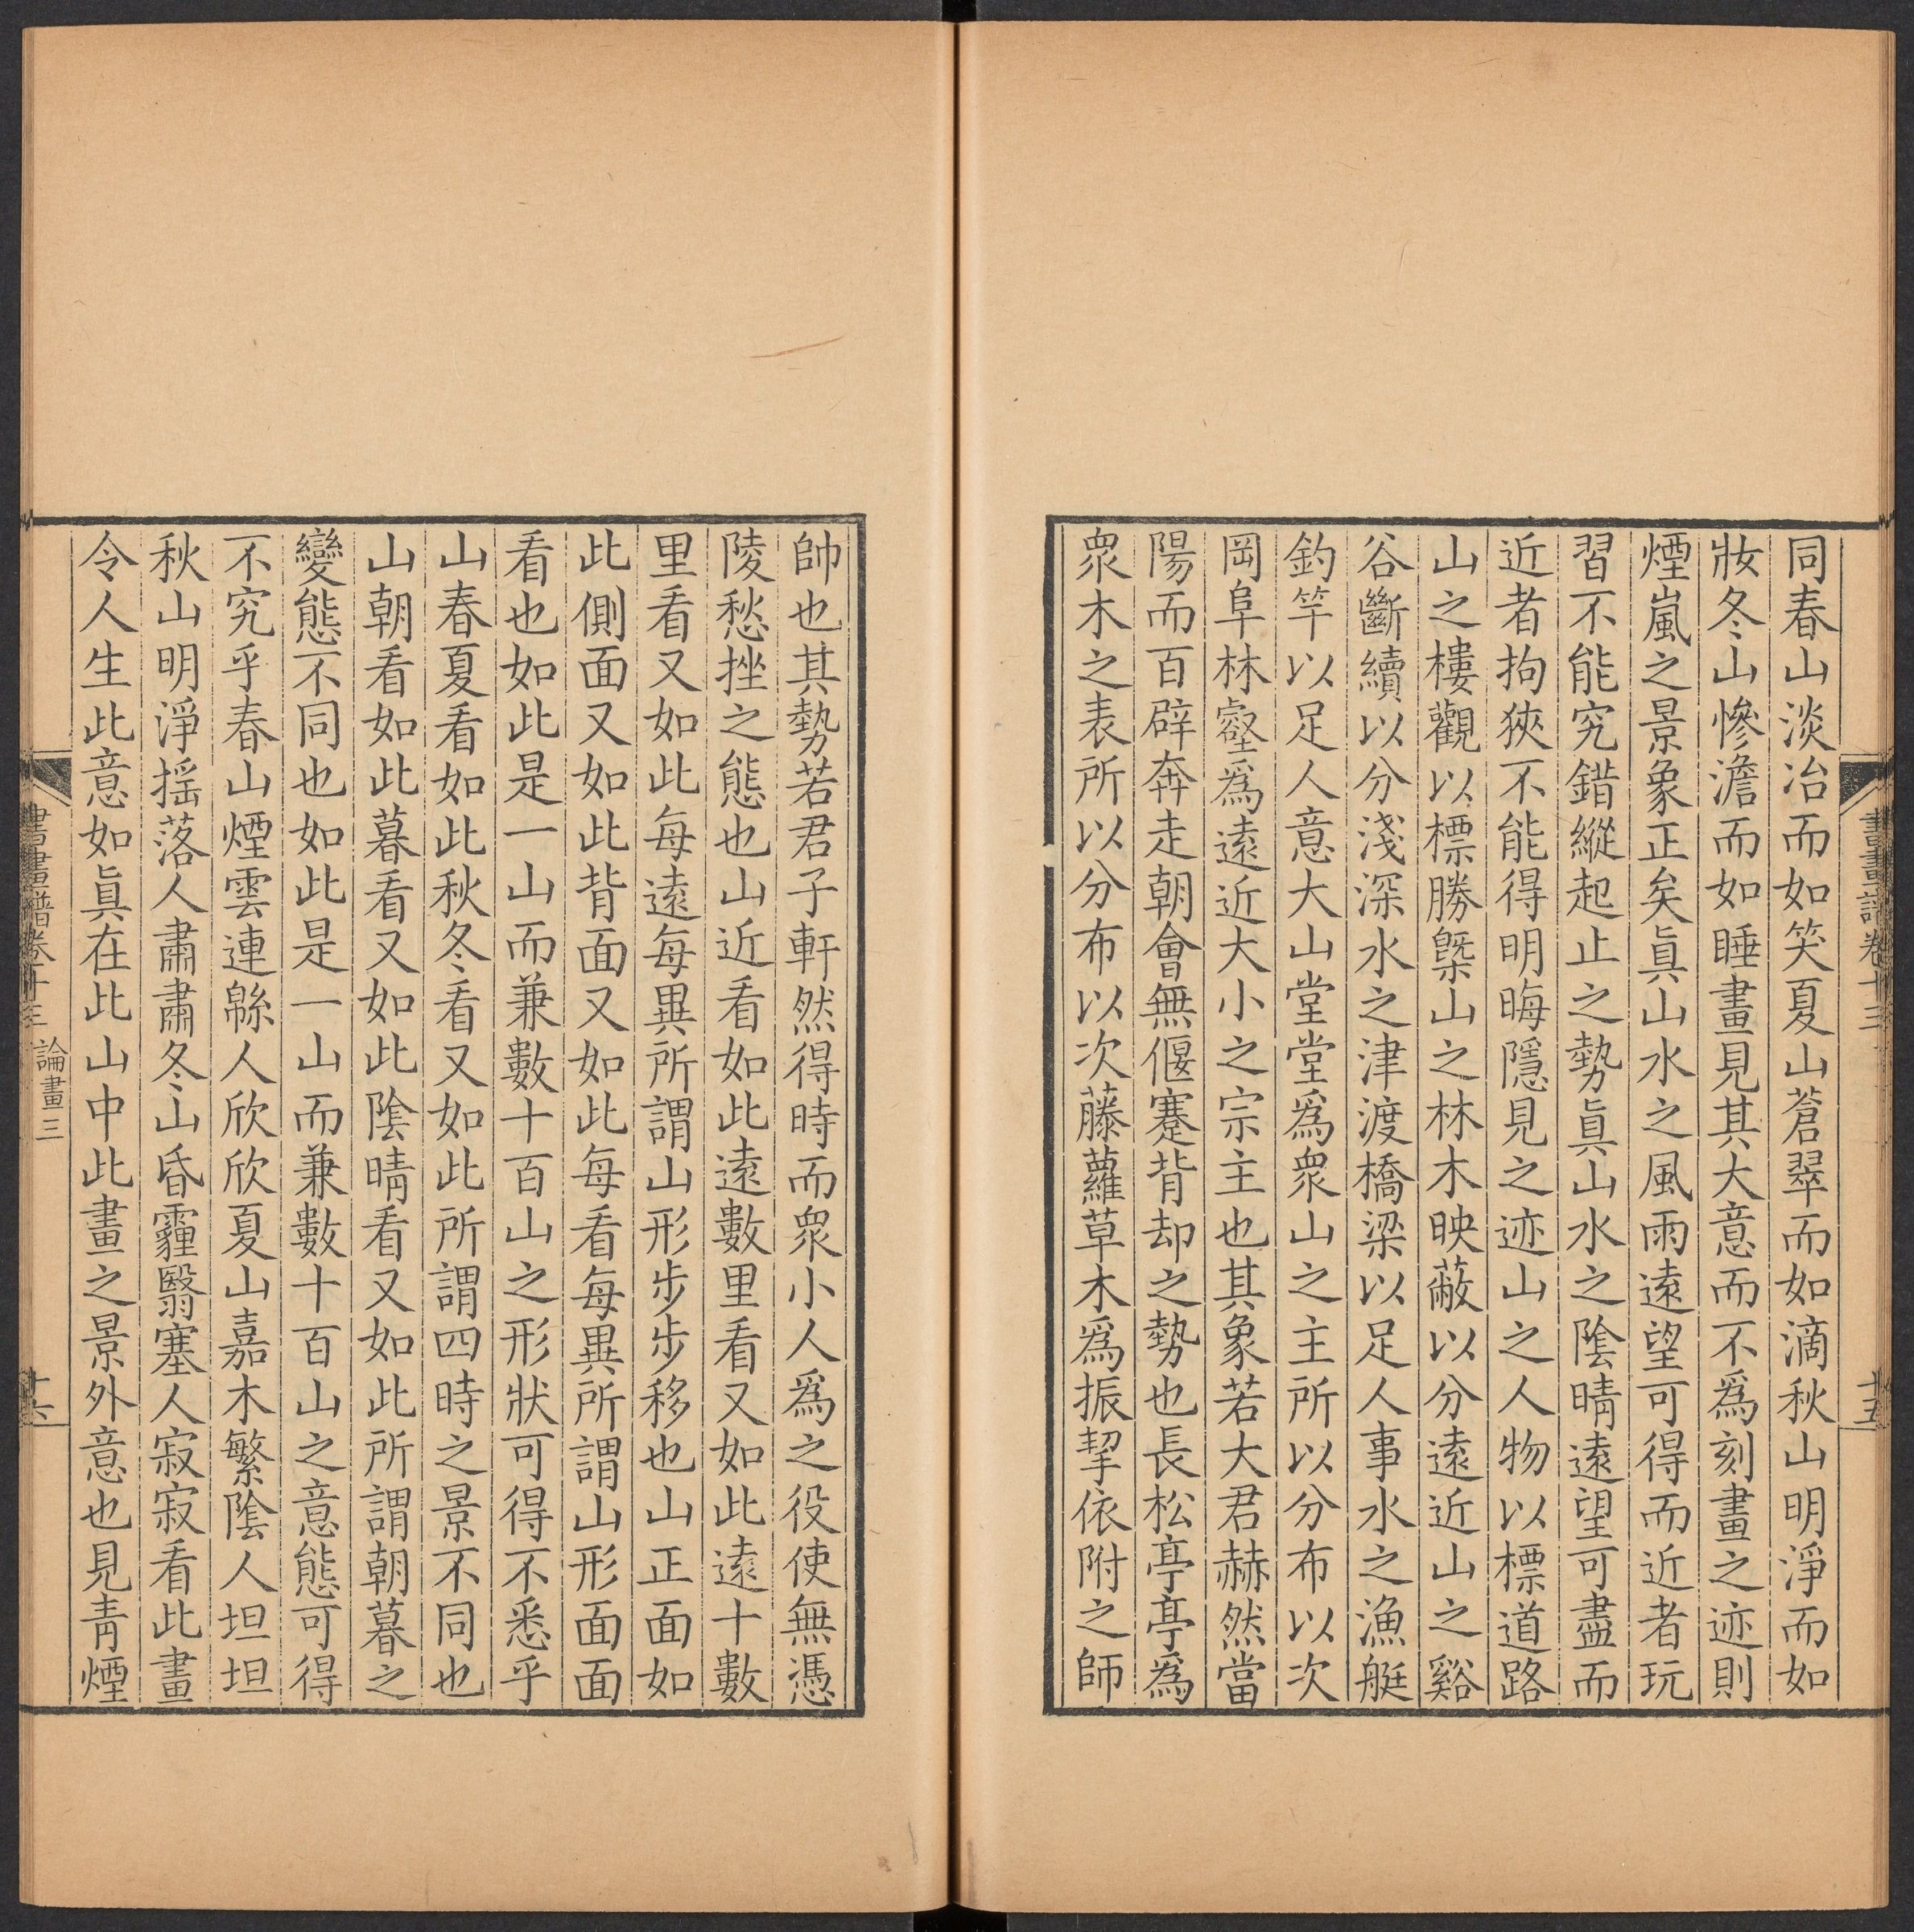 同春山淡冶而如笑夏山蒼翠而如滴秋山明淨而如
妝冬山慘澹而如睡畫見其大意而不爲刻畫之迹則
煙嵐之景象正矣眞山水之風雨遠望可得而近者玩
習不能究錯縱起止之勢眞山水之陰晴遠望可盡而
近者拘狹不能得明晦隱見之迹山之人物以標道路
山之樓觀以標勝槩山之林木映蔽以分遠近山之谿
谷斷續以分淺深水之津渡橋梁以足人事水之漁艇
釣竿以足人意大山堂堂爲衆山之主所以分布以次
岡阜林壑爲遠近大小之宗主也其象若大君赫然當
陽而百辟奔走朝會無偃蹇背却之勢也長松亭亭爲
衆木之表所以分布以次藤蘿草木爲振挈依附之師
書畫譜卷十三
十五
帥也其勢若君子軒然得時而衆小人爲之役使無憑
陵愁挫之態也山近看如此遠數里看又如此遠十數
里看又如此每遠每異所謂山形步步移也山正面如
此側面又如此背面又如此每看每異所謂山形面面
看也如此是一山而兼數十百山之形狀可得不悉乎
山春夏看如此秋冬看又如此所謂四時之景不同也
山朝看如此暮看又如此陰晴看又如此所謂朝暮之
變態不同也如此是一山而兼數十百山之意態可得
不究乎春山煙雲連緜人欣欣夏山嘉木繁陰人坦坦
秋山明淨搖落人肅肅冬山昏霾翳塞人寂寂看此畫
令人生此意如眞在此山中此畫之景外意也見青煙
書畫譜卷十三 論畫三
十六